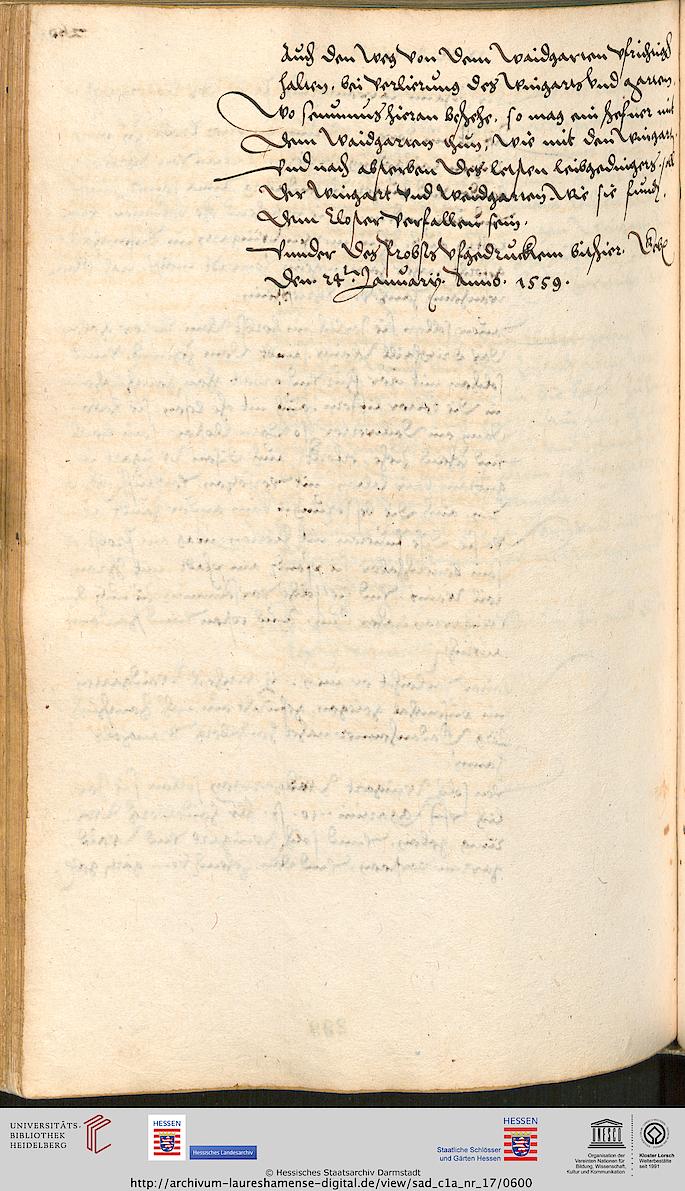 Auch den Weg von dem Waidgarten vfrichtig
halten, bei verlierung des Wingarts vnd garten,
Wo seumnus hieran beschehe, so mag ein Hefner mit
dem Waidgarten thun, wie mit den Wingart,
Vnd nach absterben des letsten leibgedingers, soll
der Wingart vnd Weidgarten, wie sie fundt,
dem Closter verfallen sein.
Vnnder des Probsts vfgedrucktem bithier.
den. 24ten Januarij. Anno. 1559.
UNIVERSITÄTS-
BIBLIOTHEK
HEIDELBERG
HESSEN
Hessisches Landesarchiv
HESSEN
Staatliche Schlösser
und Gärten Hessen
Organisation der
Vereinten Nationen für
Bildung, Wissenschaft,
Kultur und Kommunikation
Kloster Lorsch
Welterbestätte
seit 1991
© Hessisches Staatsarchiv Darmstadt
http://archivum-laureshamense-digital.de/view/sad_c1a_nr_17/0600